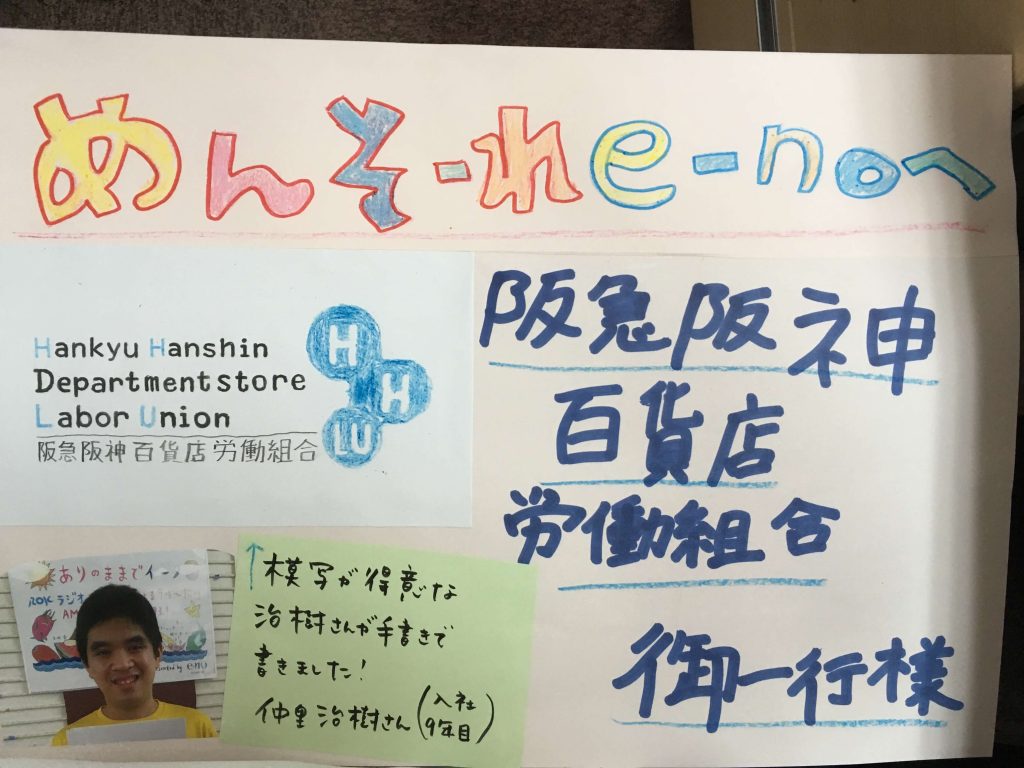 めんそーれe-noへ
Hankyu Hanshin
Department store
Labor Union
阪急阪神百貨店労働組合
H
H
LU
阪急阪神
百貨店
労働組合
御一行様
ありのままでイーノ
ROKラジオ
AM
↑模写が得意な
治樹さんが手書きで
書きました!
仲里治樹さん(入社9年目)